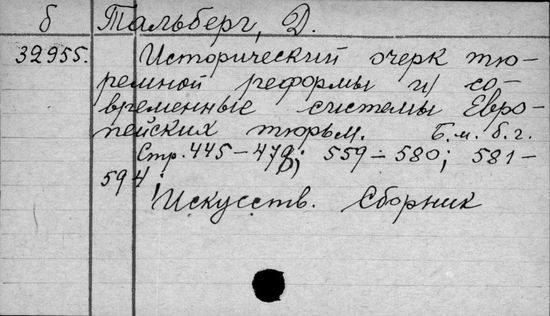 б Тальберг, Д.
32955. Исторический очерк тю-
ремной реформы и со-
временные системы Евро-
пейских тюрьм. Б. м. б. г.
Стр. 445–478; 559–580; 581–
594;
Искусств. Сборник